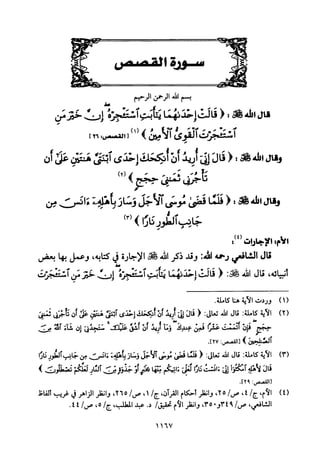 سورة القصص
بسم الله الرحمن الرحيم
قال الله ﷻ: ﴿ قَالَتْ إِحْدَىٰهُمَا يَٰٓأَبَتِ ٱسْتَـْٔجِرْهُ إِنَّ خَيْرَ مَنِ
ٱسْتَـْٔجَرْتَ ٱلْقَوِىُّ ٱلْأَمِينُ ﴾ (١) [القصص: ٢٦]
وقال الله ﷻ: ﴿ قَالَ إِنِّىٓ أُرِيدُ أَنْ أُنكِحَكَ إِحْدَى ٱبْنَتَىَّ هَٰتَيْنِ عَلَىٰٓ أَن
تَأْجُرَنِى ثَمَٰنِىَ حِجَجٍ ﴾ (٢)
وقال الله ﷻ: ﴿ فَلَمَّا قَضَىٰ مُوسَى ٱلْأَجَلَ وَسَارَ بِأَهْلِهِۦٓ ءَانَسَ مِن
جَانِبِ ٱلطُّورِ نَارًا ﴾ (٣)
الأم: الإجارات (٤):
قال الشافعي رحمه الله: وقد ذكر الله ﷻ الإجارة في كتابه، وعمل بها بعض
أنبيائه، قال الله ﷻ: ﴿ قَالَتْ إِحْدَىٰهُمَا يَٰٓأَبَتِ ٱسْتَـْٔجِرْهُ إِنَّ خَيْرَ مَنِ ٱسْتَـْٔجَرْتَ
(١) وردت الآية هنا كاملة.
(٢) الآية كاملة: قال الله تعالى: ﴿ قَالَ إِنِّىٓ أُرِيدُ أَنْ أُنكِحَكَ إِحْدَى ٱبْنَتَىَّ هَٰتَيْنِ عَلَىٰٓ أَن تَأْجُرَنِى ثَمَٰنِىَ
حِجَجٍ فَإِنْ أَتْمَمْتَ عَشْرًا فَمِنْ عِندِكَ وَمَآ أُرِيدُ أَنْ أَشُقَّ عَلَيْكَ سَتَجِدُنِىٓ إِن شَآءَ ٱللَّهُ مِنَ
ٱلصَّٰلِحِينَ ﴾ [القصص: ٢٧].
(٣) الآية كاملة: قال الله تعالى: ﴿ فَلَمَّا قَضَىٰ مُوسَى ٱلْأَجَلَ وَسَارَ بِأَهْلِهِۦٓ ءَانَسَ مِن جَانِبِ ٱلطُّورِ نَارًا
قَالَ لِأَهْلِهِ ٱمْكُثُوٓا۟ إِنِّىٓ ءَانَسْتُ نَارًا لَّعَلِّىٓ ءَاتِيكُم مِّنْهَا بِخَبَرٍ أَوْ جَذْوَةٍ مِّنَ ٱلنَّارِ لَعَلَّكُمْ تَصْطَلُونَ ﴾
[القصص: ٢٩].
(٤) الأم، ج/٤، ص/٢٥، وانظر أحكام القرآن، ج/١، ص/٢٦٥، وانظر الزاهر في غريب ألفاظ
الشافعي، ص/٣٤٩ و٣٥٠، وانظر الأم تحقيق/ د. عبد المطلب، ج/٥، ص/٤٤.
١١٦٧